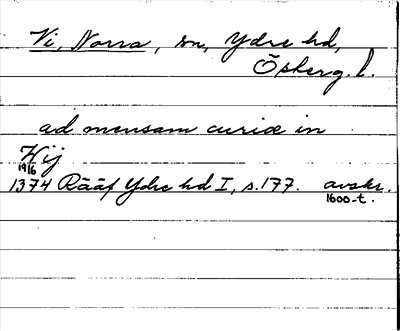 Vi, Norra, sn, Ydre hd,
Östergl.
ad mensam curiæ in
Wij
19/6
1374 Rääf Ydre hd I, s.177. avskr.
1600-t.